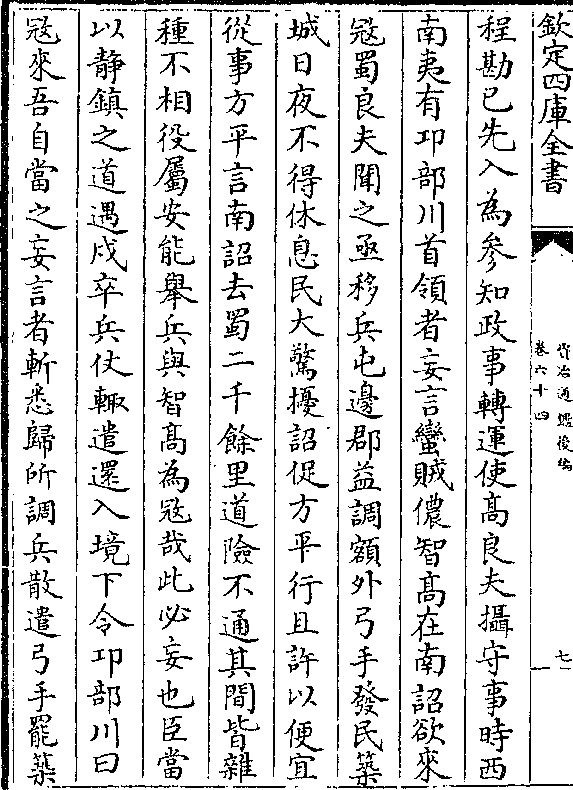 欽定四庫全書
資治通鑑後編
卷六十四
七
程勘已先入為參知政事轉運使高良夫攝守事時西
南夷有邛部川首領者妄言蠻賊儂智高在南詔欲來
寇蜀良夫聞之亟移兵屯邊郡益調額外弓手發民築
城日夜不得休息民大驚擾詔促方平行且許以便宜
從事方平言南詔去蜀二千餘里道險不通其間皆雜
種不相役屬安能舉兵與智高為寇哉此必妄也臣當
以靜鎮之道遇戍卒兵仗輒遣還入境下令邛部川曰
寇來吾自當之妄言者斬悉歸所調兵散遣弓手罷築